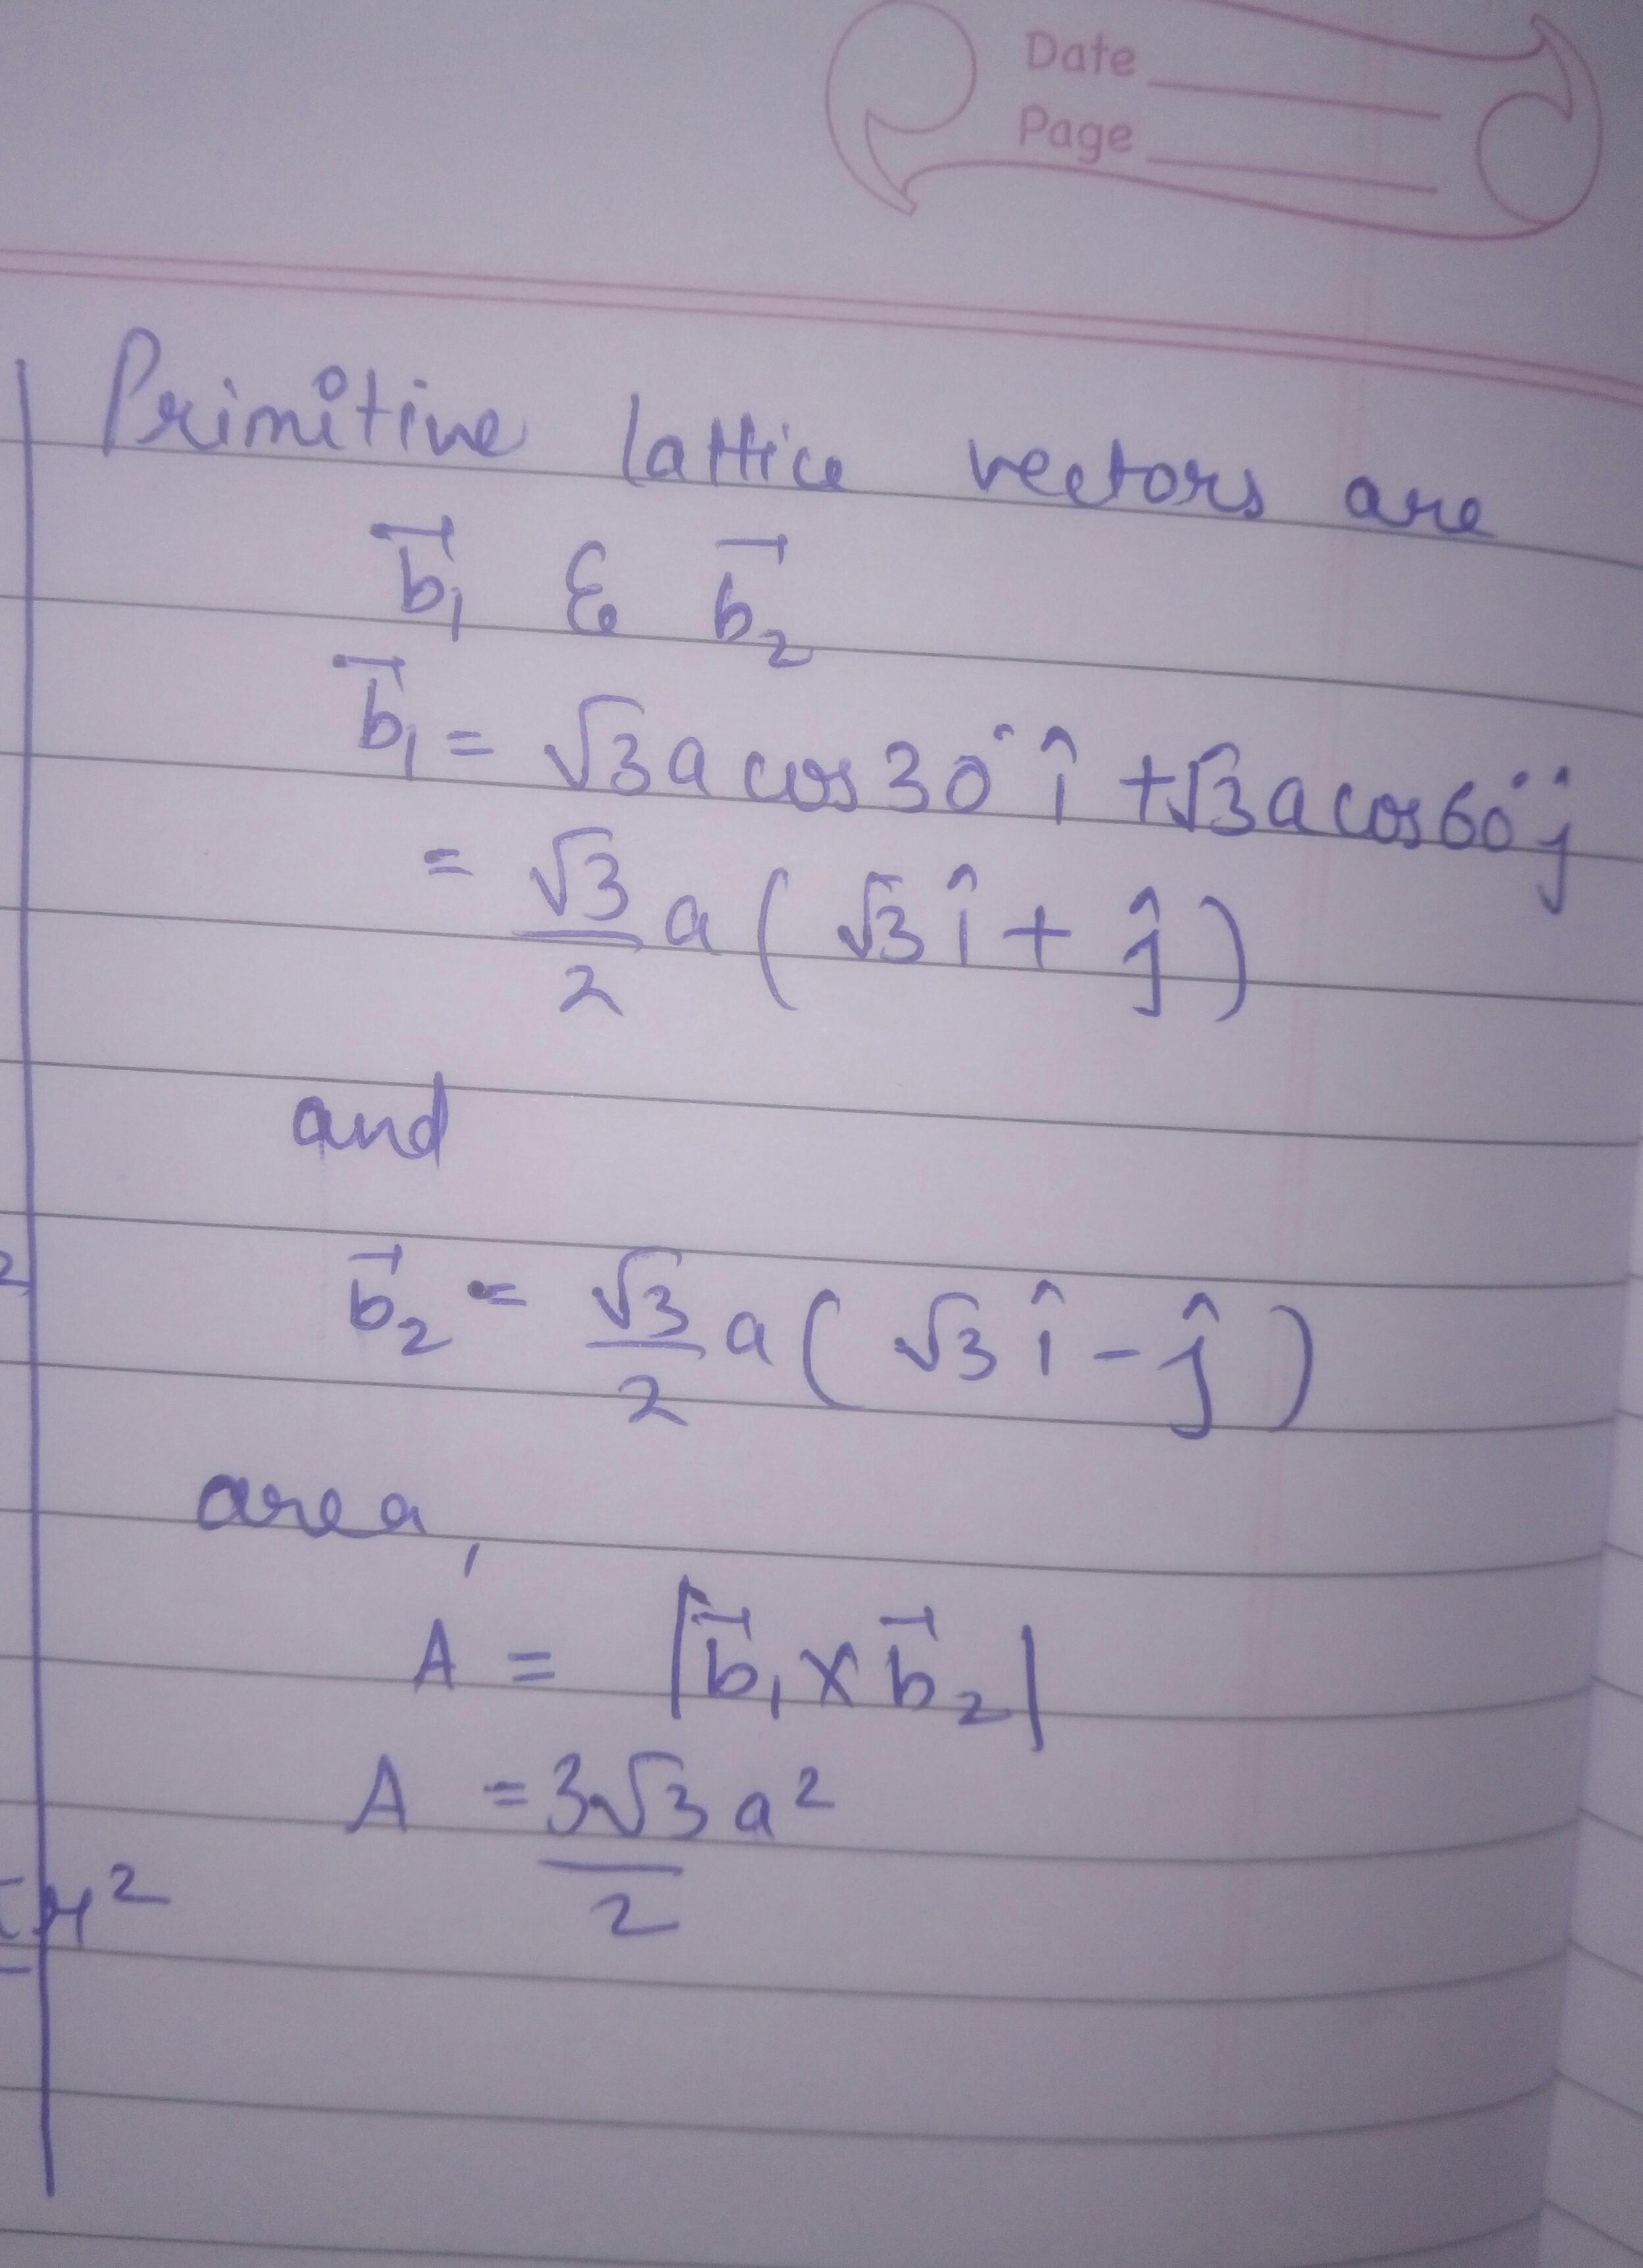 Date
Page
Primitive lattice vectors are
b⃗₁ & b⃗₂
b⃗₁ = √3a cos30° î + √3a cos60° ĵ
= √3/2 a (√3 î + ĵ)
and
b⃗₂ = √3/2 a (√3 î - ĵ)
2
area,
A = |b⃗₁ × b⃗₂|
A = 3√3 a²/2